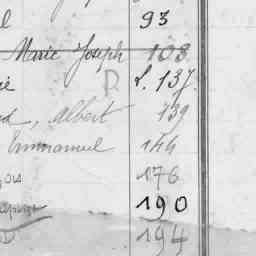 93
Marie Joseph 103
D L. 137
, Albert 139
Emmanuel 144
176
190
194